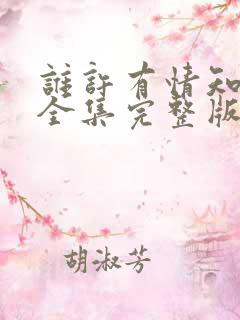 誰許有情知
全集完整版
胡淑芳